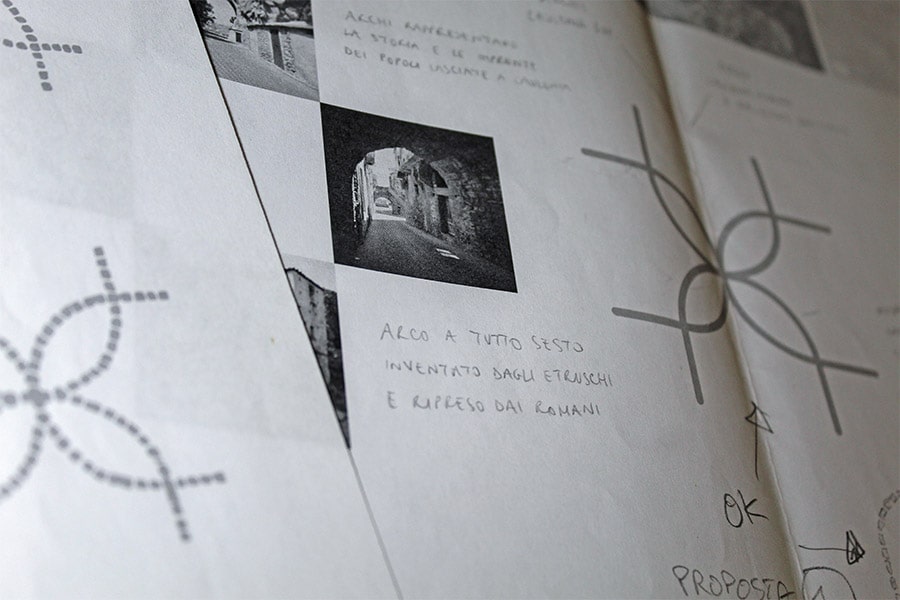 ARCHI RAPPRESENTANO
LA STORIA E LE IMPRONTE
DEI POPOLI LASCIATE A
ARCO A TUTTO SESTO
INVENTATO DAGLI ETRUSCHI
E RIPRESO DAI ROMANI
OK
PROPOSTA